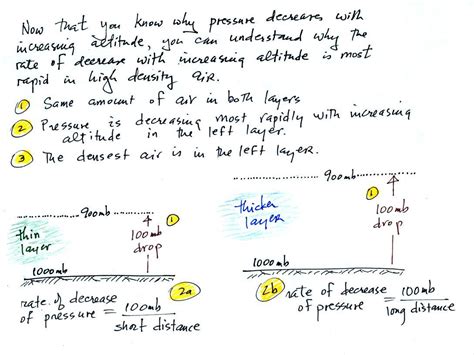 Now that you know why pressure decreases with
increasing altitude, you can understand why the
rate of decrease with increasing altitude is most
rapid in high density air.
① Same amount of air in both layers
② Pressure is decreasing most rapidly with increasing
altitude in the left layer.
③ The densest air is in the left layer.
900mb
①
thin
layer
100mb
drop
1000mb
rate of decrease
of pressure = 100mb
short distance
2a
900mb
①
thicker
layer
100mb
drop
1000mb
2b
rate of decrease
of pressure = 100mb
long distance